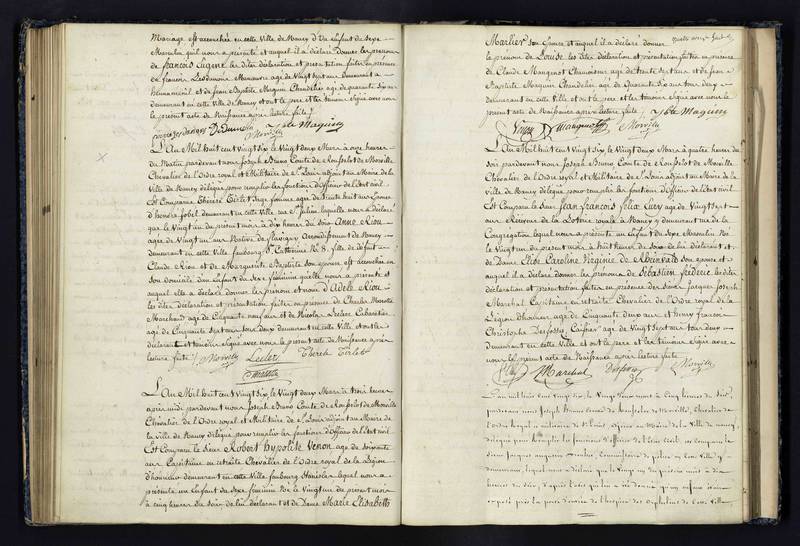 Mariage est accouchée en cette Ville de Nancy d'Un enfant du sexe
Masculin qu'il nous a présenté et auquel il a déclaré donner les prénoms
de françois Eugene les dites déclaration et présentation faites en présence
de francois
agé de Vingt sept ans demeurant à
et de Jean Baptiste Maguin Chandelier agé de quarante six ans
demeurant en cette Ville de Nancy et ont le pere et les témoins signé avec nous
le présent acte de Naissance après lecture faite
Jbte Maguin
L'An Mil huit cent Vingt six, le Vingt deux Mars à onze heures
du Matin pardevant nous Joseph Bruno Comte de Rousselot de Morville
Chevalier de l'Ordre royal et Militaire de St Louis adjoint au Maire de la
Ville de Nancy délégué pour remplir les fonctions d'Officier de l'Etat civil
Est Comparue Thérèse Tirlet Sage femme agée de trente huit ans Epouse
d'hendre jobel demeurant en cette Ville rue St Julien, laquelle nous a déclaré
que le Vingt un du présent mois à dix heures du soir Anne Riou
agée de Vingt un ans Native de flavigny Arrondissement de Nancy
demeurant en cette Ville faubourg Ste Catherine No 8, fille de défunt
Claude Riou et de Marguerite Baptiste son épouse est accouchée en
son domicile d'un Enfant du Sexe féminin qu'elle nous a présenté et
auquel elle a déclaré donner les prénom et nom d'Adele Riou
les dites déclaration et présentation faites en présence de Charles Morotte
Marchand agé de Cinquante neuf ans et de Nicolas Leclerc Cabaretier
agé de Cinquante Sept ans tous deux demeurant en cette Ville et ont les
déclarante et témoins signé avec nous le présent acte de Naissance après
lecture faite
Morville Leclerc Thérèse Tirlet
L'An Mil huit cent Vingt six, le Vingt deux Mars à trois heures
après midi pardevant nous Joseph Bruno Comte de Rousselot de Morville
Chevalier de l'Ordre royal et Militaire de St Louis adjoint au Maire de
la Ville de Nancy délégué pour remplir les fonctions d'Officier de l'Etat civil
Est Comparu le Sieur Robert hypolite Venon agé de soixante
ans Capitaine en retraite Chevalier de l'Ordre royal de la Légion
d'honneur demeurant en cette Ville faubourg Stanislas lequel nous a
présenté un Enfant du Sexe féminin Né le Vingt un du présent mois
à cinq heures du soir de lui déclarant et de Dame Marie Elisabeth
Marlier son Epouse et auquel il a déclaré donner
le prénom de Louise les dites déclaration et présentation faites en présence
de Claude Mangenot Chaudronnier agé de trente sept ans et de Jean
Baptiste Maguin Chandelier agé de Quarante six ans tous deux
demeurant en cette Ville et ont le pere et les témoins signé avec nous le
présent acte de Naissance après lecture faite
Jbte Maguin
Venon Mangenot Morville
L'An Mil huit cent Vingt six, le Vingt deux Mars à quatre heures du
soir pardevant nous Joseph Bruno Comte de Rousselot de Morville
Chevalier de l'Ordre royal et Militaire de St Louis adjoint au Maire de la
Ville de Nancy délégué pour remplir les fonctions d'Officier de l'Etat civil
Est Comparu le Sieur jean françois félix Lucy agé de Vingt sept
ans Receveur de la Loterie royale à Nancy y demeurant rue de la
Congregation lequel nous a présenté un Enfant du Sexe Masculin Né
le Vingt un du présent mois à huit heures du soir de lui déclarant et
de Dame Elise Caroline Virginie de Rheinvald son épouse et
auquel il a déclaré donner les prénoms de Sébastien fréderic les dites
déclaration et présentation faites en présence des Sieurs Jacques Joseph
Marchal Capitaine en retraite Chevalier de l'Ordre royal de la
Légion d'Honneur agé de Cinquante deux ans et Henry francois
Christophe Desfossés, Caissier agé de Vingt Sept ans tous deux
demeurant en cette Ville et ont le pere et les témoins signé avec
nous le présent acte de Naissance après lecture faite
Lucy Marchal Desfossés Morville
L'an mil huit cent vingt six, le Vingt deux mars à Cinq heures du soir,
pardevant nous Joseph Bruno Comte de Rousselot de Morville, Chevalier de
l'Ordre royal et militaire de St Louis, adjoint au Maire de la Ville de nancy,
délégué pour remplir les fonctions d'officier de l'Etat Civil, est Comparu le
Sieur Jacques
Commissaire de police en cette Ville y
demeurant, lequel nous a déclaré que le Vingt un du présent mois à dix
heures du soir,
exposé près la porte d'entrée de l'hospice des Orphelins de Cette Ville